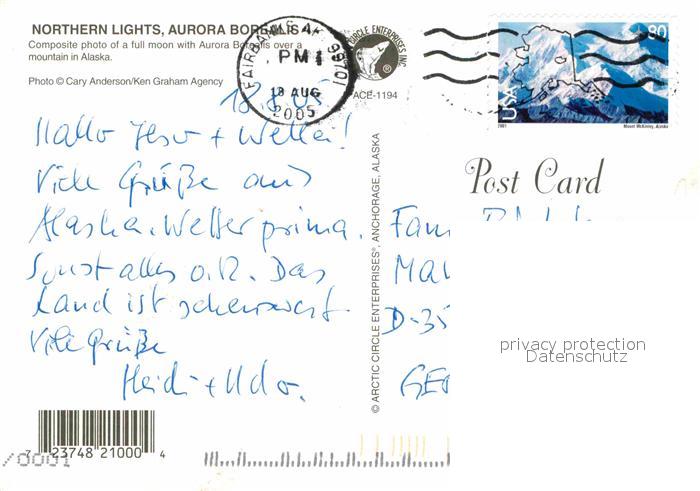 NORTHERN LIGHTS, AURORA BOREALIS
Composite photo of a full moon with Aurora Borealis over a
mountain in Alaska.
Photo © Cary Anderson/Ken Graham Agency
FAIRBANKS AK 99701
PM
18 AUG
2005
CIRCLE ENTERPRISES INC
®
ACE-1194
80
USA
2001
Mount McKinley, Alaska
Post Card
18.8.05
Hallo
Viele Grüße aus
Alaska. Wetter prima.
Sonst alles o.k. Das
Land ist sehenswert.
Viele Grüße
Heidi + Udo.
© ARCTIC CIRCLE ENTERPRISES®, ANCHORAGE, ALASKA
Fam
D-35
GE
privacy protection
Datenschutz
3 23748 21000 4
/0001